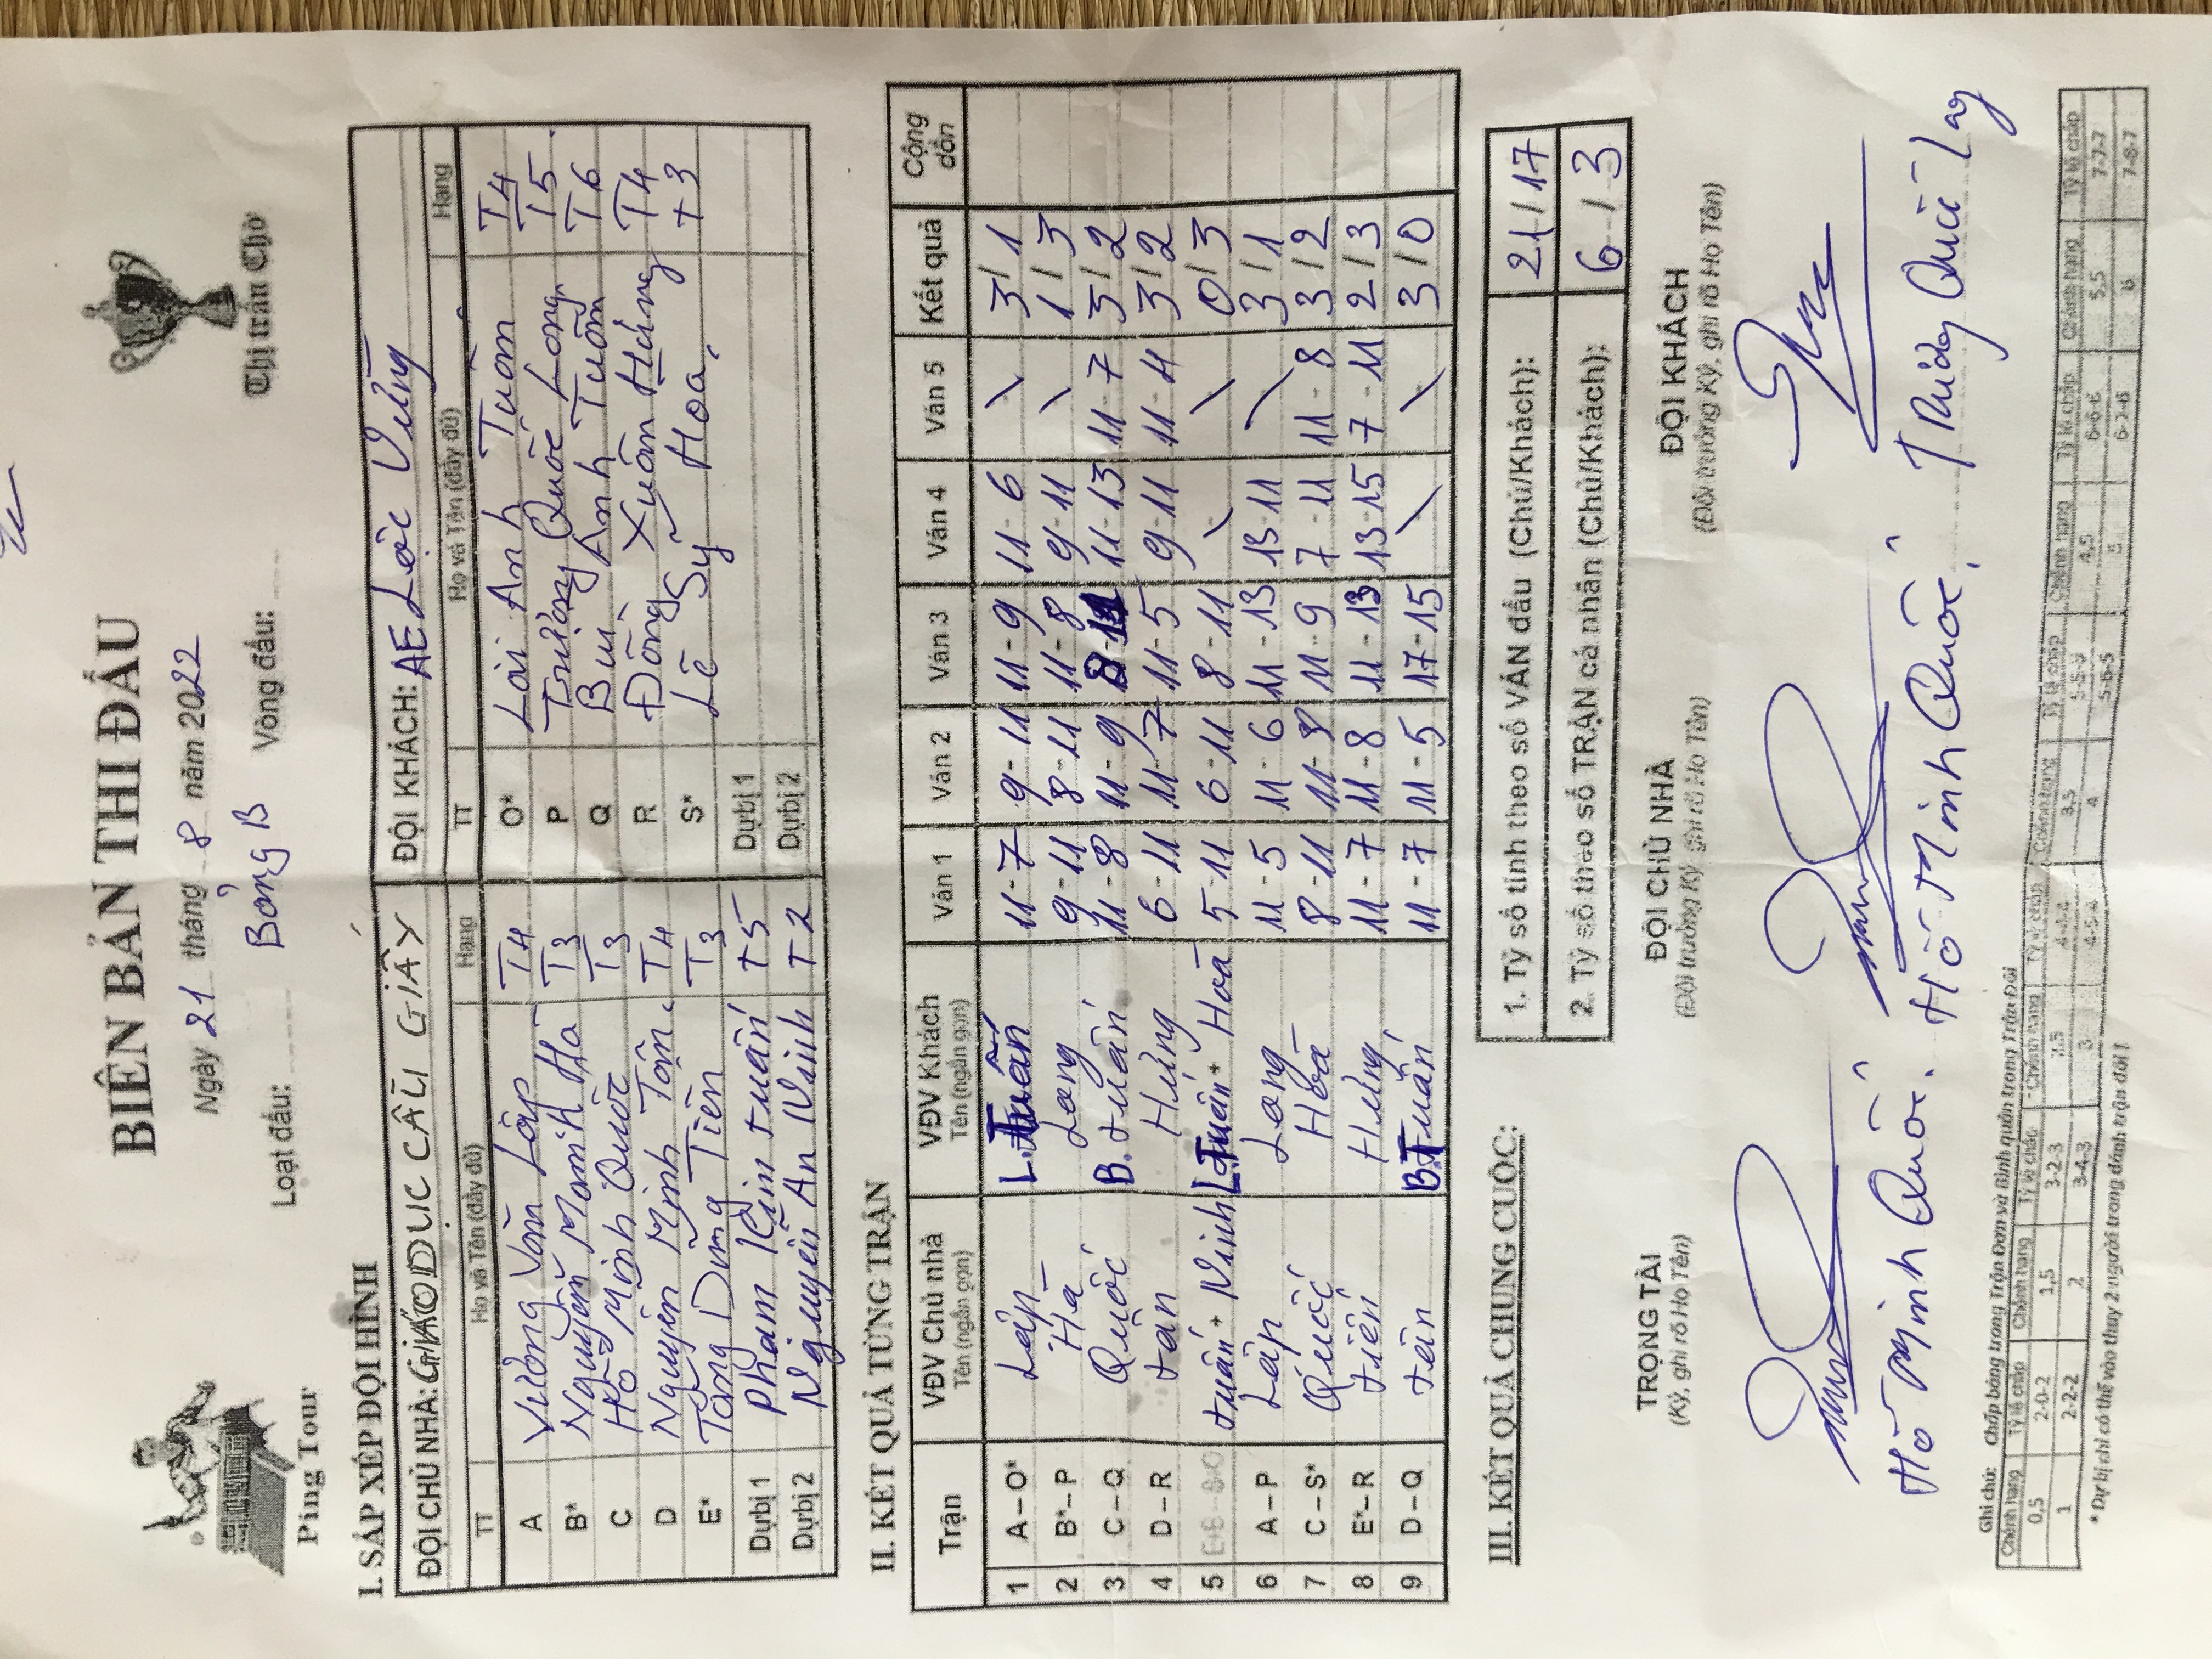 Ping Tour
BIÊN BẢN THI ĐẤU
Thị trấn Chờ
Ngày 21 tháng 8 năm 2022
Loạt đấu: Bảng B Vòng đấu:
I. SẮP XẾP ĐỘI HÌNH
ĐỘI CHỦ NHÀ: GIÁO DỤC CẦU GIẤY ĐỘI KHÁCH: AE Lộc Vừng
TT Họ và Tên (đầy đủ) Hạng TT Họ và Tên (đầy đủ) Hạng
A Vương Văn Lập T4 O* Lại Anh Tuấn T4
B* Nguyễn Mạnh Hà T3 P Trương Quốc Long T5
C Hồ Minh Quốc T3 Q Bùi Anh Tuấn T6
D Nguyễn Minh Tân T4 R Đồng Xuân Hùng T4
E* Tống Dũng Tiến T3 S* Lê Sỹ Hoa T3
Dự bị 1 Phạm Kim Tuấn T5 Dự bị 1
Dự bị 2 Nguyễn An Ninh T2 Dự bị 2
II. KẾT QUẢ TỪNG TRẬN
Trận VĐV Chủ nhà Tên (ngắn gọn) VĐV Khách Tên (ngắn gọn) Ván 1 Ván 2 Ván 3 Ván 4 Ván 5 Kết quả Cộng dồn
1 A – O* Lập L.Tuấn 11-7 9-11 11-9 11-6 \ 3/1
2 B* – P Hà Long 9-11 8-11 11-8 9-11 \ 1/3
3 C – Q Quốc B.tuấn 11-8 11-9 11-13 11-7 3/2
4 D – R tân Hùng 6-11 11-7 11-5 9-11 11-4 3/2
5 tuấn + Ninh L.Tuấn + Hoà 5-11 6-11 8-11 \ \ 0/3
6 A – P Lập Long 11-5 11-6 11-13 13-11 \ 3/1
7 C – S* Quốc Hoà 8-11 11-8 11-9 7-11 11-8 3/2
8 E* – R tiến Hùng 11-7 11-8 11-13 13-15 7-11 2/3
9 D – Q tân B.Tuấn 11-7 11-5 17-15 \ \ 3/0
III. KẾT QUẢ CHUNG CUỘC:
1. Tỷ số tính theo số VÁN đấu (Chủ/Khách): 21/17
2. Tỷ số theo số TRẬN cá nhân (Chủ/Khách): 6/3
TRỌNG TÀI ĐỘI CHỦ NHÀ ĐỘI KHÁCH
(Ký, ghi rõ Họ Tên) (Đội trưởng Ký, ghi rõ Họ Tên) (Đội trưởng Ký, ghi rõ Họ Tên)
Hồ Minh Quốc. Hồ Minh Quốc. Trương Quốc Long
Ghi chú: Chấp bóng trong Trận Đơn và Bình quân trong Trận Đôi
Chênh hạng Tỷ lệ chấp Chênh hạng Tỷ lệ chấp Chênh hạng Tỷ lệ chấp Chênh hạng Tỷ lệ chấp Chênh hạng Tỷ lệ chấp Chênh hạng Tỷ lệ chấp
0,5 2-0-2 1,5 3-2-3 2,5 4-4-4 3,5 5-5-5 4,5 6-6-6 5,5 7-7-7
1 2-2-2 2 3-4-3 3 4-5-4 4 5-6-5 5 6-7-6 6 7-8-7
* Dự bị chỉ có thể vào thay 2 người trong đánh trận đôi !